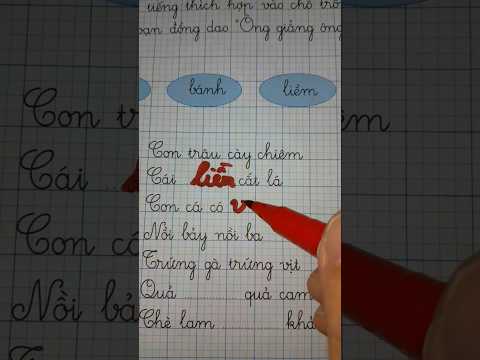 tiếng thích hợp vào chỗ trố
đoạn đồng dao "Ông giẳng ông
bánh liềm
Con trâu cày chiêm
Cái liềm cắt lá
Con cá có v
Nồi bảy nồi ba
Trứng gà trứng vịt
Quả ...... quả cam
Chè lam ......